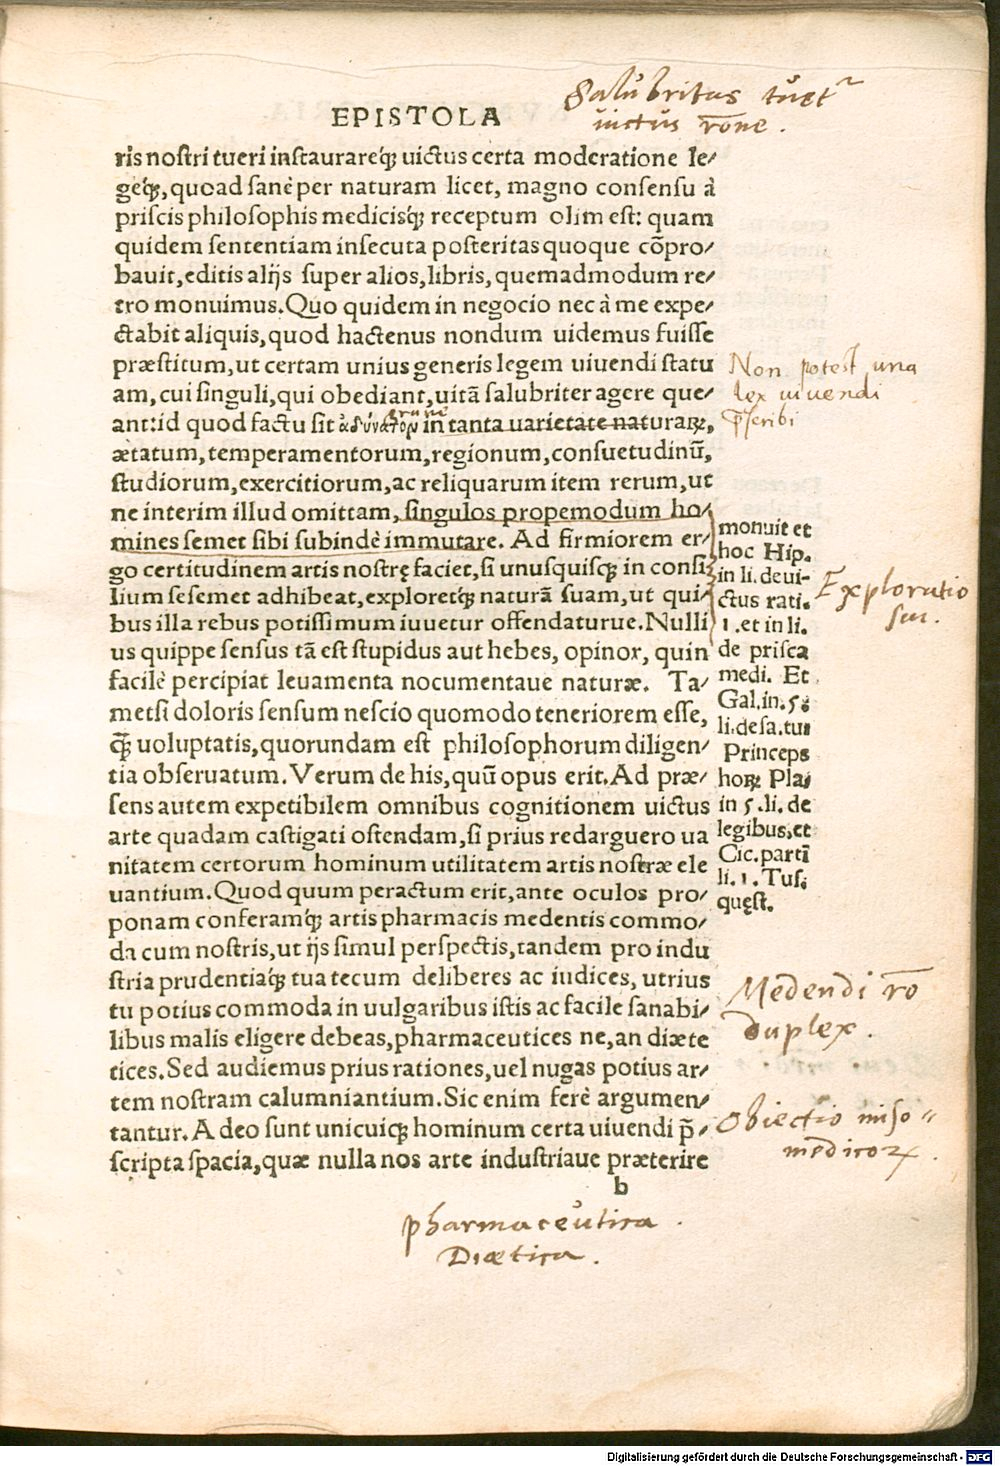 Salubritas tuet᷑
uictus rōne.
EPISTOLA
ris nostri tueri instaurareq́; uictus certa moderatione le⸗
geq́;, quoad sanè per naturam licet, magno consensu à
priscis philosophis medicisq́; receptum olim est: quam
quidem sententiam insecuta posteritas quoque cōpro⸗
bauit, editis alijs super alios, libris, quemadmodum re⸗
tro monuimus. Quo quidem in negocio nec à me expe⸗
ctabit aliquis, quod hactenus nondum uidemus fuisse
præstitum, ut certam unius generis legem uiuendi statu
am, cui singuli, qui obediant, uitā salubriter agere que⸗
ant: id quod factu sit ἀδύνατον in tanta uarietate naturaꝝ,
ætatum, temperamentorum, regionum, consuetudinū,
studiorum, exercitiorum, ac reliquarum item rerum, ut
ne interim illud omittam, singulos propemodum ho⸗
mines semet sibi subindè immutare. Ad firmiorem er⸗
go certitudinem artis nostrę faciet, si unusquisq́; in consi
lium sesemet adhibeat, exploretq́; naturā suam, ut qui⸗
bus illa rebus potissimum iuuetur offendaturue. Nulli
us quippe sensus tā est stupidus aut hebes, opinor, quin
facilè percipiat leuamenta nocumentaue naturæ. Ta⸗
metsi doloris sensum nescio quomodo teneriorem esse,
q̄; uoluptatis, quorundam est philosophorum diligen⸗
tia obseruatum. Verum de his, quū opus erit. Ad præ⸗
sens autem expetibilem omnibus cognitionem uictus
arte quadam castigati ostendam, si prius redarguero ua
nitatem certorum hominum utilitatem artis nostræ ele
uantium. Quod quum peractum erit, ante oculos pro⸗
ponam conferamq́; artis pharmacis medentis commo⸗
da cum nostris, ut ijs simul perspectis, tandem pro indu
stria prudentiaq́; tua tecum deliberes ac iudices, utrius
tu potius commoda in uulgaribus istis ac facile sanabi⸗
libus malis eligere debeas, pharmaceutices ne, an diæte
tices. Sed audiemus prius rationes, uel nugas potius ar⸗
tem nostram calumniantium. Sic enim ferè argumen⸗
tantur. Adeo sunt unicuiq́; hominum certa uiuendi p̄⸗
scripta spacia, quæ nulla nos arte industriaue præterire
b
Non potest una
lex uiuendi
p̄scribi
monuit et
hoc Hip.
in li. de ui⸗
ctus rati.
1. et in li.
de prisca
medi. Et
Gal. in. 5.
li. de sa. tu.
Princeps
horꝝ Pla⸗
in 5. li. de
legibus, et
Cic. parti
li. 1. Tus.
quęst.
Exploratio
sui.
Medendi rō
duplex.
Obiectio miso⸗
medicoꝝ.
pharmaceutica.
Diætica.
Digitalisierung gefördert durch die Deutsche Forschungsgemeinschaft - DFG